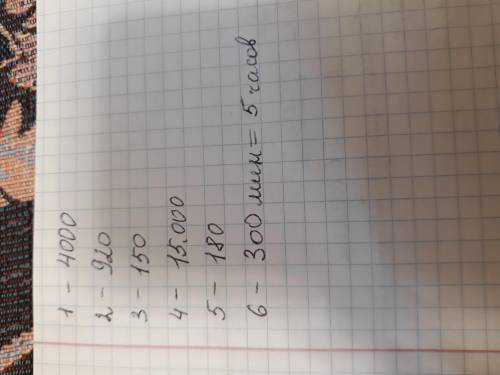 1 - 4000
2 - 920
3 - 150
4 - 15.000
5 - 180
6 - 300 мин = 5 часов